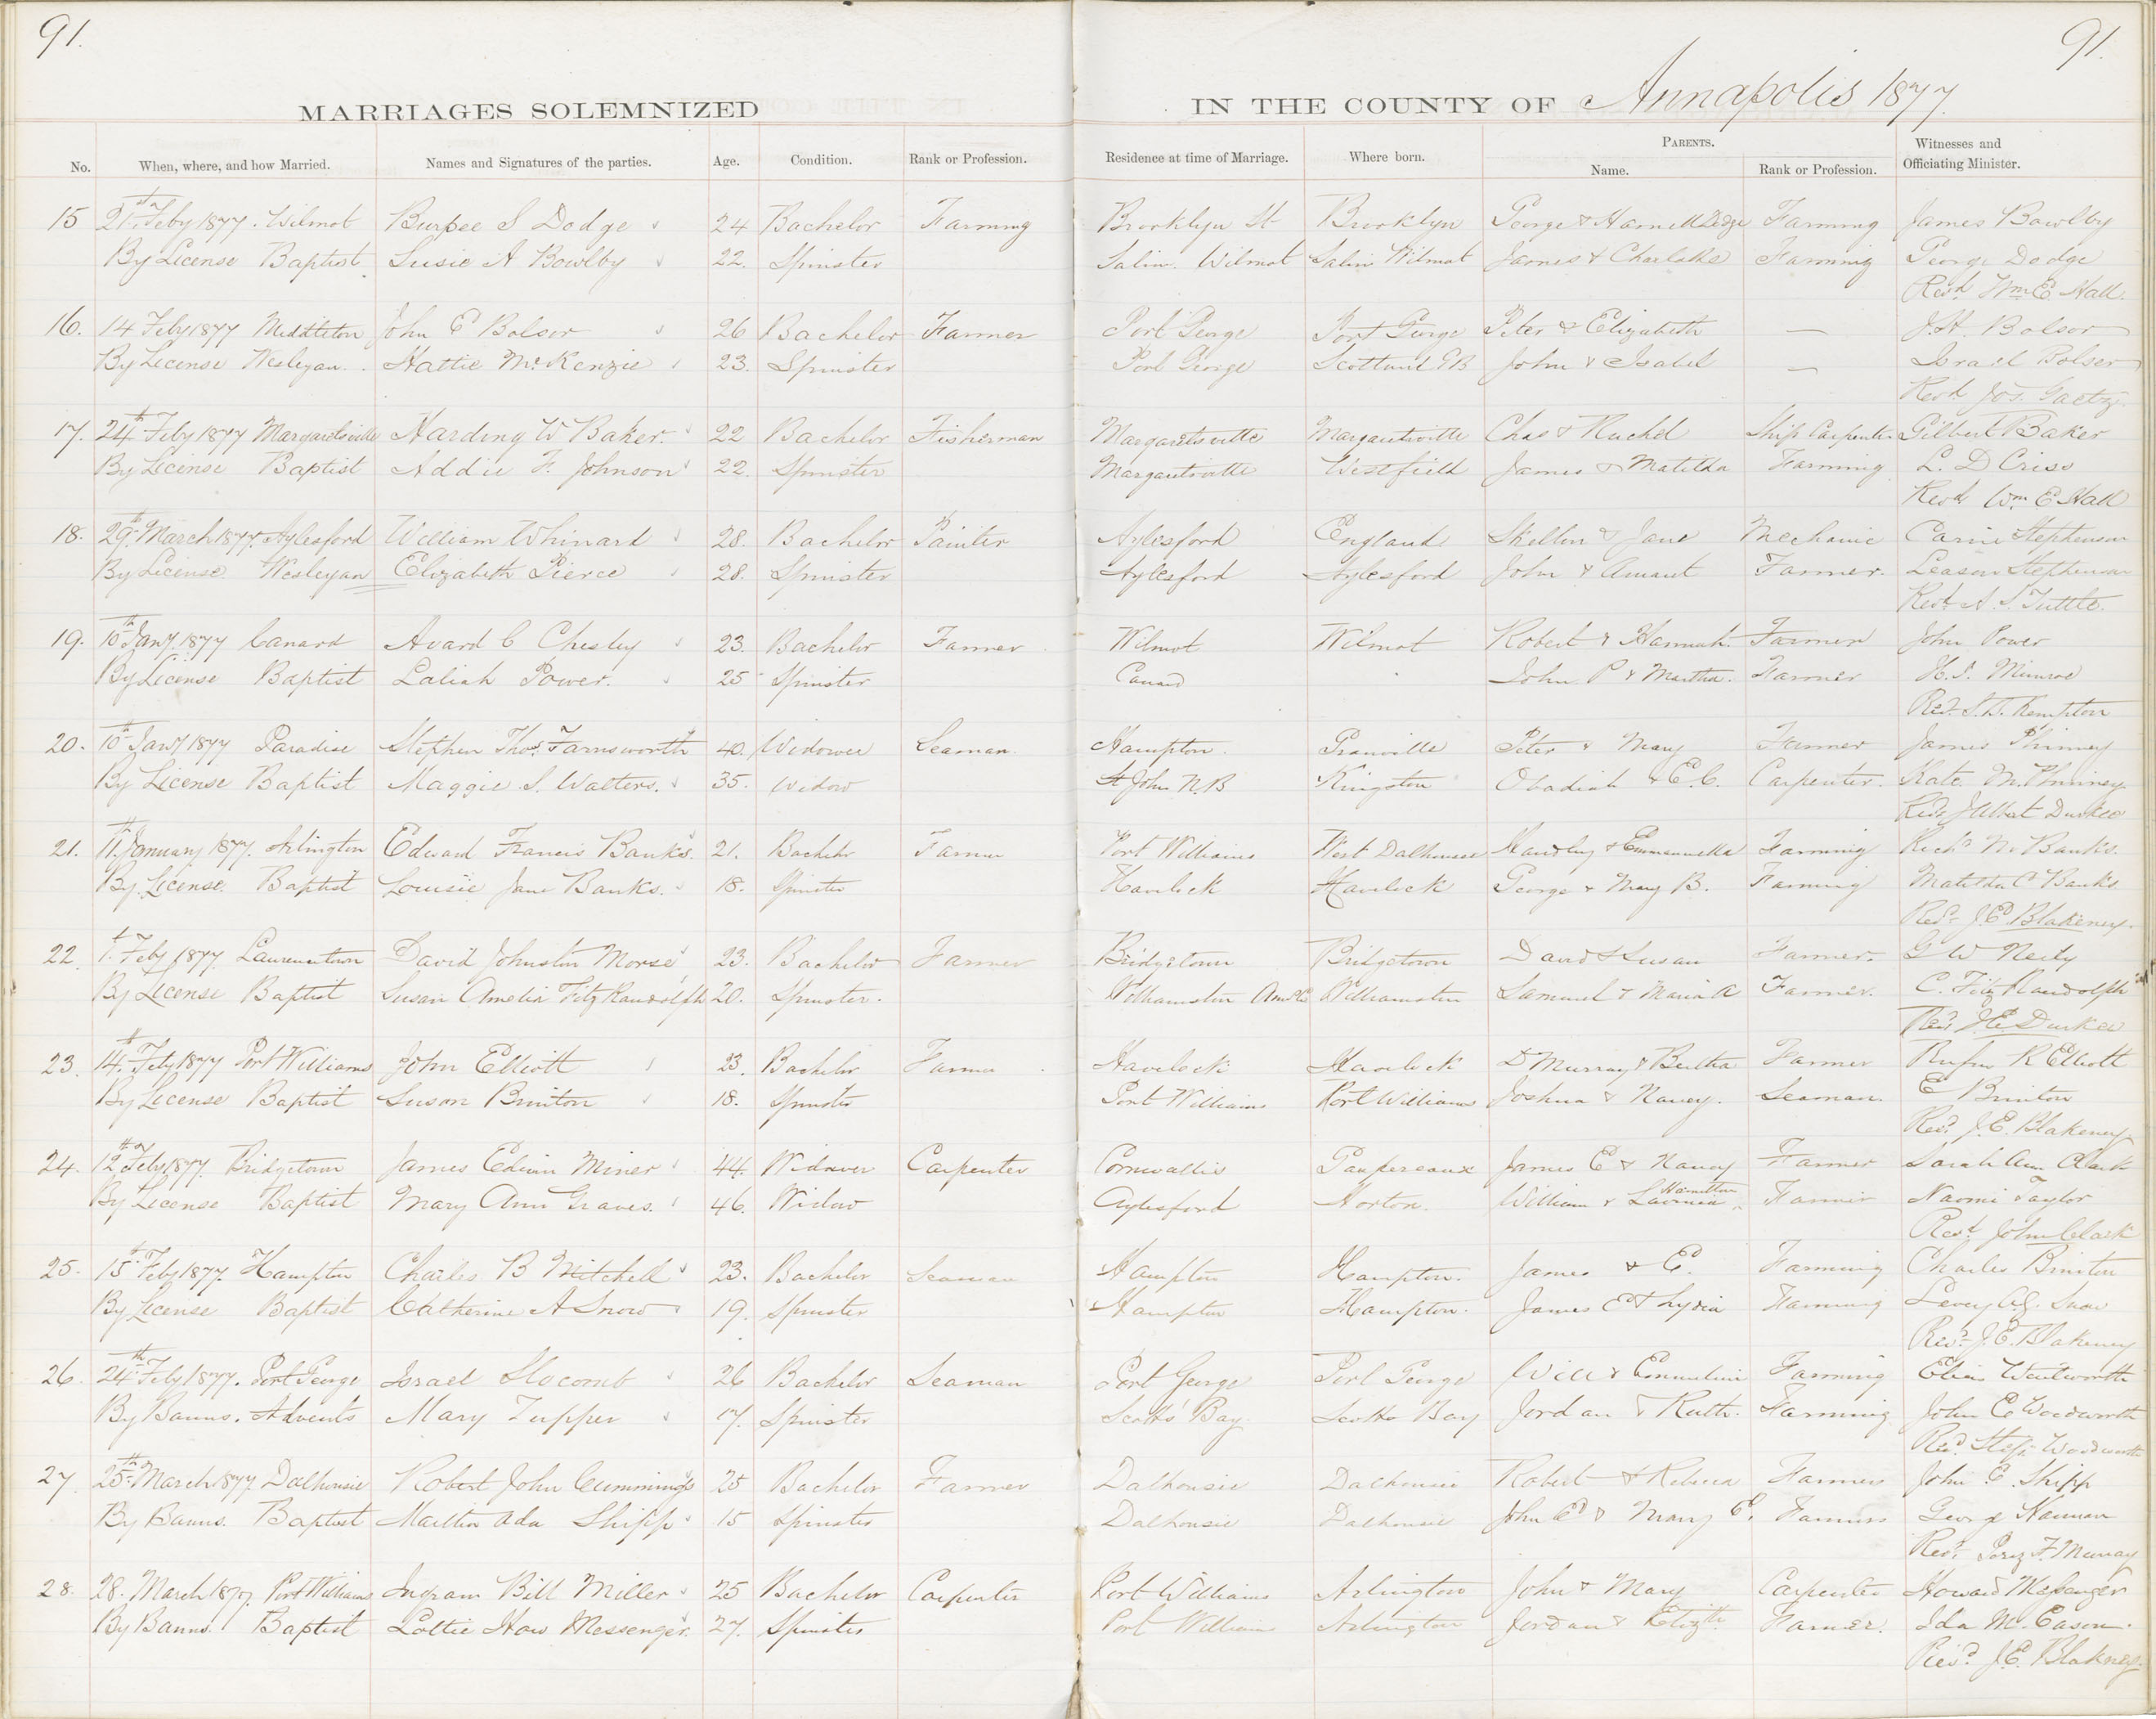 91.
91.
MARRIAGES SOLEMNIZED
IN THE COUNTY OF Annapolis 1877.
No. When, where, and how Married. Names and Signatures of the parties. Age. Condition. Rank or Profession. Residence at time of Marriage. Where born. PARENTS. Name. Rank or Profession. Witnesses and Officiating Minister.
15 21st Feby 1877. Wilmot Burpee S Dodge 24 Bachelor Farming Brooklyn St Brooklyn George & Harriett Dodge Farming James Bowlby
By License Baptist Susie A Bowlby 22. Spinster Wilmot Wilmot James & Charlotte Farming George Dodge
Revd Wm E Hall.
16. 14 Feby 1877 Middleton John E Bolsor 26 Bachelor Farmer Port George Port George Peter & Elizabeth — J.H. Bolsor
By License Wesleyan. Hattie McKenzie 23. Spinster Port George Scotland GB John & Isabel — Israel Bolser
Revd Jos. Gaetz.
17. 24th Feby 1877 Margaretsville Harding W Baker. 22 Bachelor Fisherman Margaretsville Margaretsville Chas & Rachel Ship Carpenter Gilbert Baker
By License Baptist Addie F. Johnson 22. Spinster Margaretsville Westfield James & Matilda Farming L. D Criss
Revd Wm E Hall
18. 29th March 1877. Aylesford William Whinard 28. Bachelor Painter Aylesford England & Jane Mechanic Stephenson
By License. Wesleyan Elizabeth Pierce 28. Spinster Aylesford Aylesford John & Farmer. Stephenson
Revd A. S. Tuttle.
19. 10th Jany. 1877 Canard Avard C Chesley 23. Bachelor Farmer Wilmot Wilmot Robert & Hannah. Farmer John Power
By License Baptist Laliah Power. 25 Spinster Canard John P & Martha. Farmer H.S. Munroe
Revd. Kempton
20. 10th Jany 1877 Paradise Stephen Thos. Farnsworth 40. Widower Seaman. Hampton. Granville Peter & Mary Farmer James Phinney
By License Baptist Maggie S. Walters. 35. Widow St John N.B Kingston Obadiah & E.C. Carpenter. Kate M. Phinney
Revd J Albert Durkee
21. 11th January 1877. Arlington Edward Francis Banks. 21. Bachelor Farmer Port Williams West Dalhousie Handley & Farming Richd N. Banks.
By License. Baptist Louisie Jane Banks. 18. Spinster Havelock Havelock George & Mary B. Farming Matilda C Banks
Revd J.E Blakeney.
22. 1st Feby 1877. Lawrencetown David Johnston Morse 23. Bachelor Farmer Bridgetown Bridgetown David & Susan Farmer. G W Neily
By License Baptist Susan Amelia Fitz Randolph 20. Spinster. Williamston Williamston Samuel & Maria A Farmer. C. Fitz Randolph
Revd J.E Durkee
23. 14th Feby 1877 Port Williams John Elliott 23. Bachelor Farmer Havelock Havelock D Murray & Bertha Farmer Rufus R Elliott
By License Baptist Susan Brinton 18. Spinster Port Williams Port Williams Joshua & Nancy. Seaman. E Brinton
Revd J.E. Blakeney
24. 12th Feby 1877. Bridgetown James Edwin Miner 44. Widower Carpenter Cornwallis Gaspereaux James E & Nancy Farmer Sarah Ann Clark
By License Baptist Mary Ann Graves. 46. Widow Aylesford Horton. William & Lavinia Hamilton Farmer Naomi Taylor
Revd. John Clark
25. 15th Feby 1877. Hampton Charles B Mitchell 23. Bachelor Seaman Hampton Hampton. James & E. Farming Charles Brinton
By License Baptist Catherine A Snow 19. Spinster Hampton Hampton. James E & Lydia Farming Snow
Revd. J.E. Blakeney
26. 24th Feby 1877. Port George Israel Slocomb 26 Bachelor Seaman Port George Port George Will & Farming Wentworth
By Banns. Advents Mary Tupper 17. Spinster Scotts Bay. Scotts Bay Jordan & Ruth. Farming John E Woodworth
Revd. Steph. Woodworth
27. 25th March 1877. Dalhousie Robert John Cummings 25 Bachelor Farmer Dalhousie Dalhousie Robert & Rebecca Farmer John E. Shipp
By Banns. Baptist Ada Shipp 15 Spinster Dalhousie Dalhousie John E & Mary E. Farmers George Hannan
Revd. F. Murray
28. 28. March 1877. Port Williams Ingram Bill Miller 25 Bachelor Carpenter Port Williams Arlington John & Mary Carpenter Howard Messenger
By Banns. Baptist Lottie How Messenger. 27. Spinster Port Williams Arlington Jordan & Elizth. Farmer. Ida M. Eason.
Revd. J.E. Blakney.